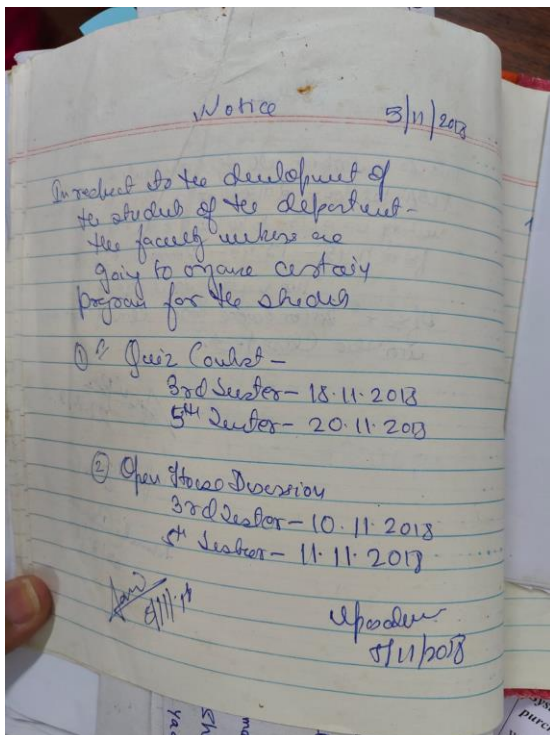 Notice 5/11/2018
In respect to the development of
the students of the department-
the faculty members are
going to organize certain
program for the students
① Quiz Contest -
3rd Semester - 18.11.2018
5th Semester - 20.11.2018
② Open House Discussion
3rd Semester - 10.11.2018
5th Semester - 11.11.2018
5/11/18
5/11/2018